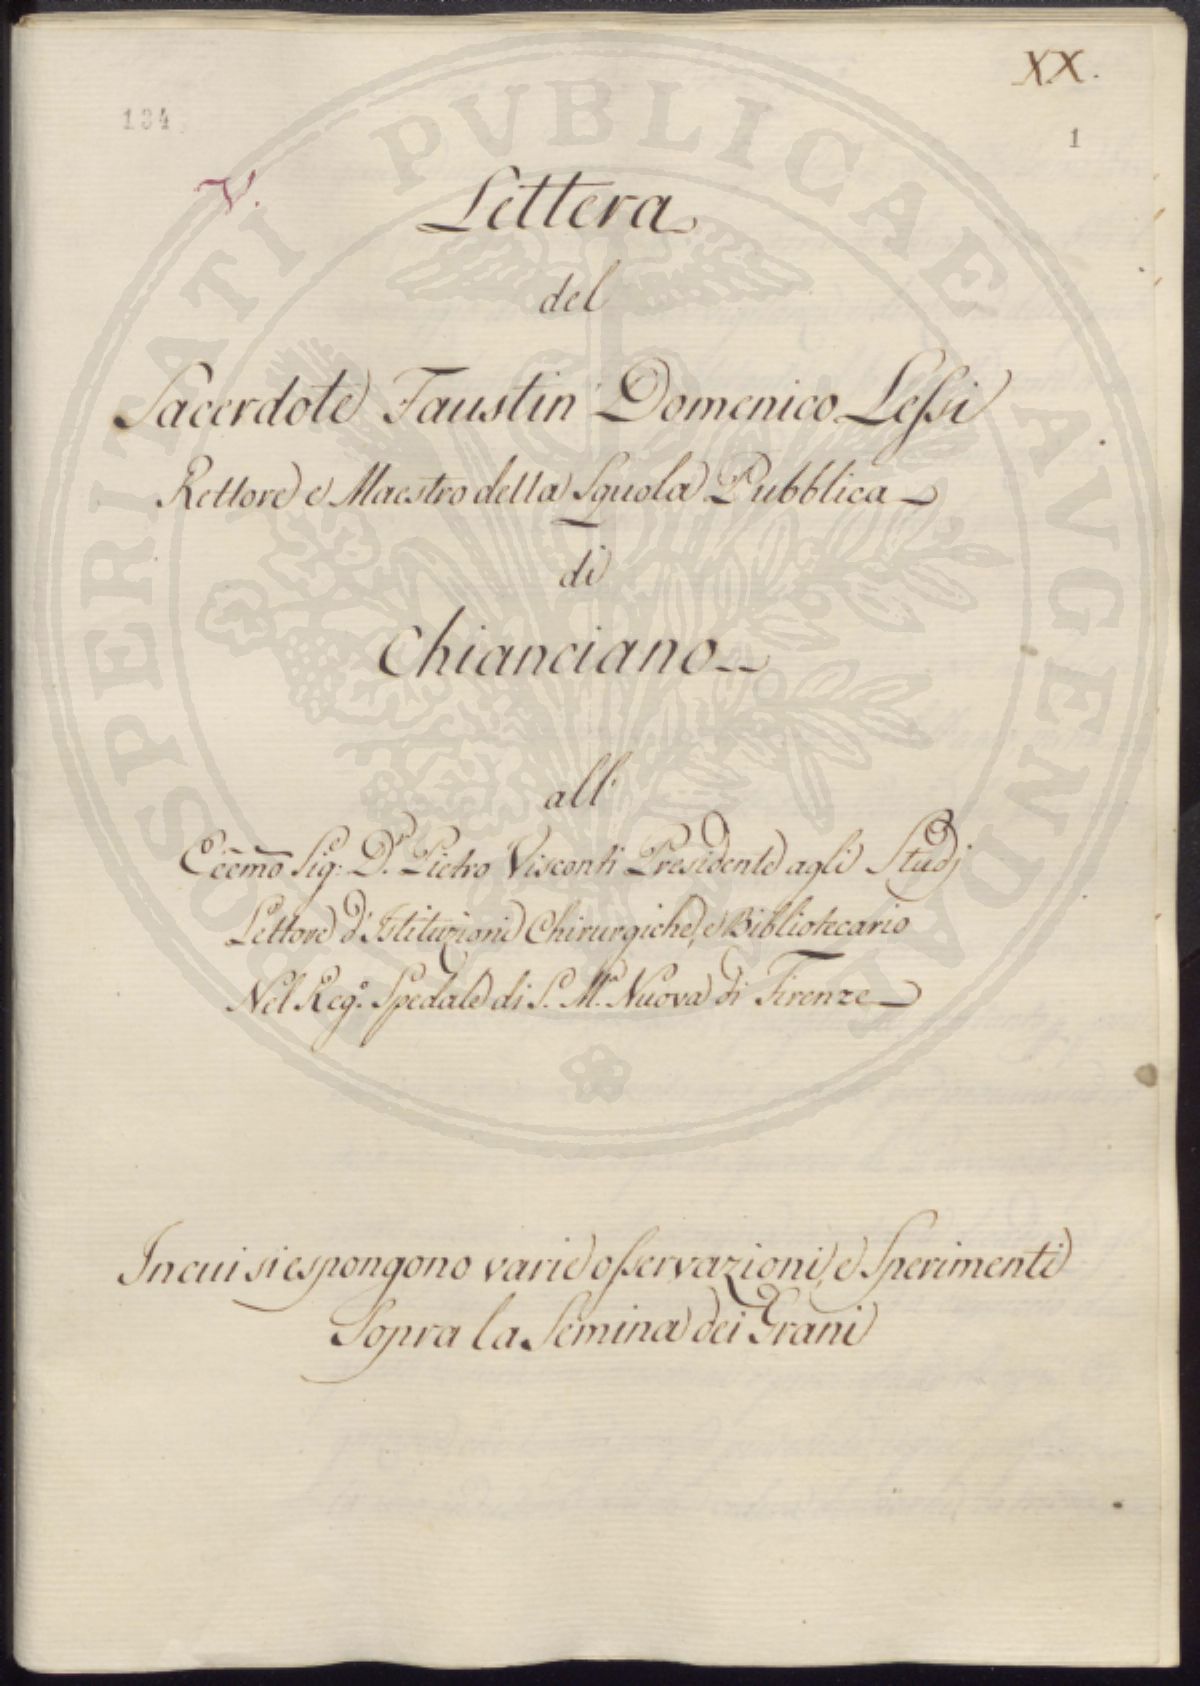 XX.
134
1
V.
Lettera
del
Sacerdote Faustin Domenico Lessi
Rettore e Maestro della Squola Pubblica
di
Chianciano
all'
Eccm̃o Sig: Dr. Pietro Visconti Presidente agli Studj
Lettore d'Istituzioni Chirurgiche, e Bibliotecario
Nel Rego. Spedale di S. Ma. Nuova di Firenze
In cui si espongono varie osservazioni, e Sperimenti
Sopra la Semina dei Grani
PROSPERITATI PVBLICAE AVGENDAE